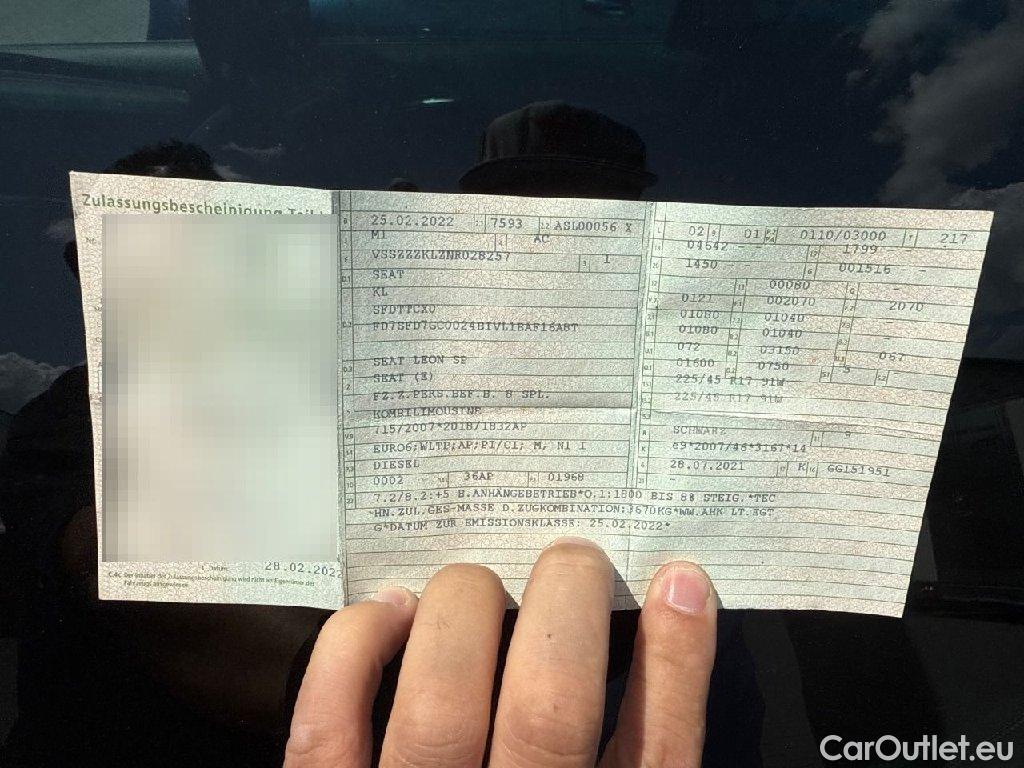 Zulassungsbescheinigung
25.02.2022 7593 ASL00056 X
M1 AC
VSSZZZKLZNR028257 1
SEAT
KL
SFDTTCX0
SEAT LEON SP
SEAT (E)
FZ.Z.PERS.BEF.B. 8 SPL.
KOMBILIMOUSINE
715/2007*2018/1832AP
EURO6;WLTP;AP;PI/CI; M, N1 I
DIESEL
0002 36AP 01968
7.2/8.2:+5 B.ANHÄNGEBETRIEB*O.1:1800 BIS 8% STEIG.*TEC
HN.ZUL.GES-MASSE D.ZUGKOMBINATION:3670KG*WW.AHK LT.EGT
G*DATUM ZUR EMISSIONSKLASSE: 25.02.2022*
02 01 0110/03000 217
04642 - 1799
1450 - 001516 -
00080 -
0121 002070 2070
01080 01040 -
01080 01040 -
072 03150 067
01600 0750 5 -
225/45 R17 91W
225/45 R17 91W
SCHWARZ 9
e9*2007/46*3167*14
28.07.2021 K GG151951
28.02.2022
CarOutlet.eu